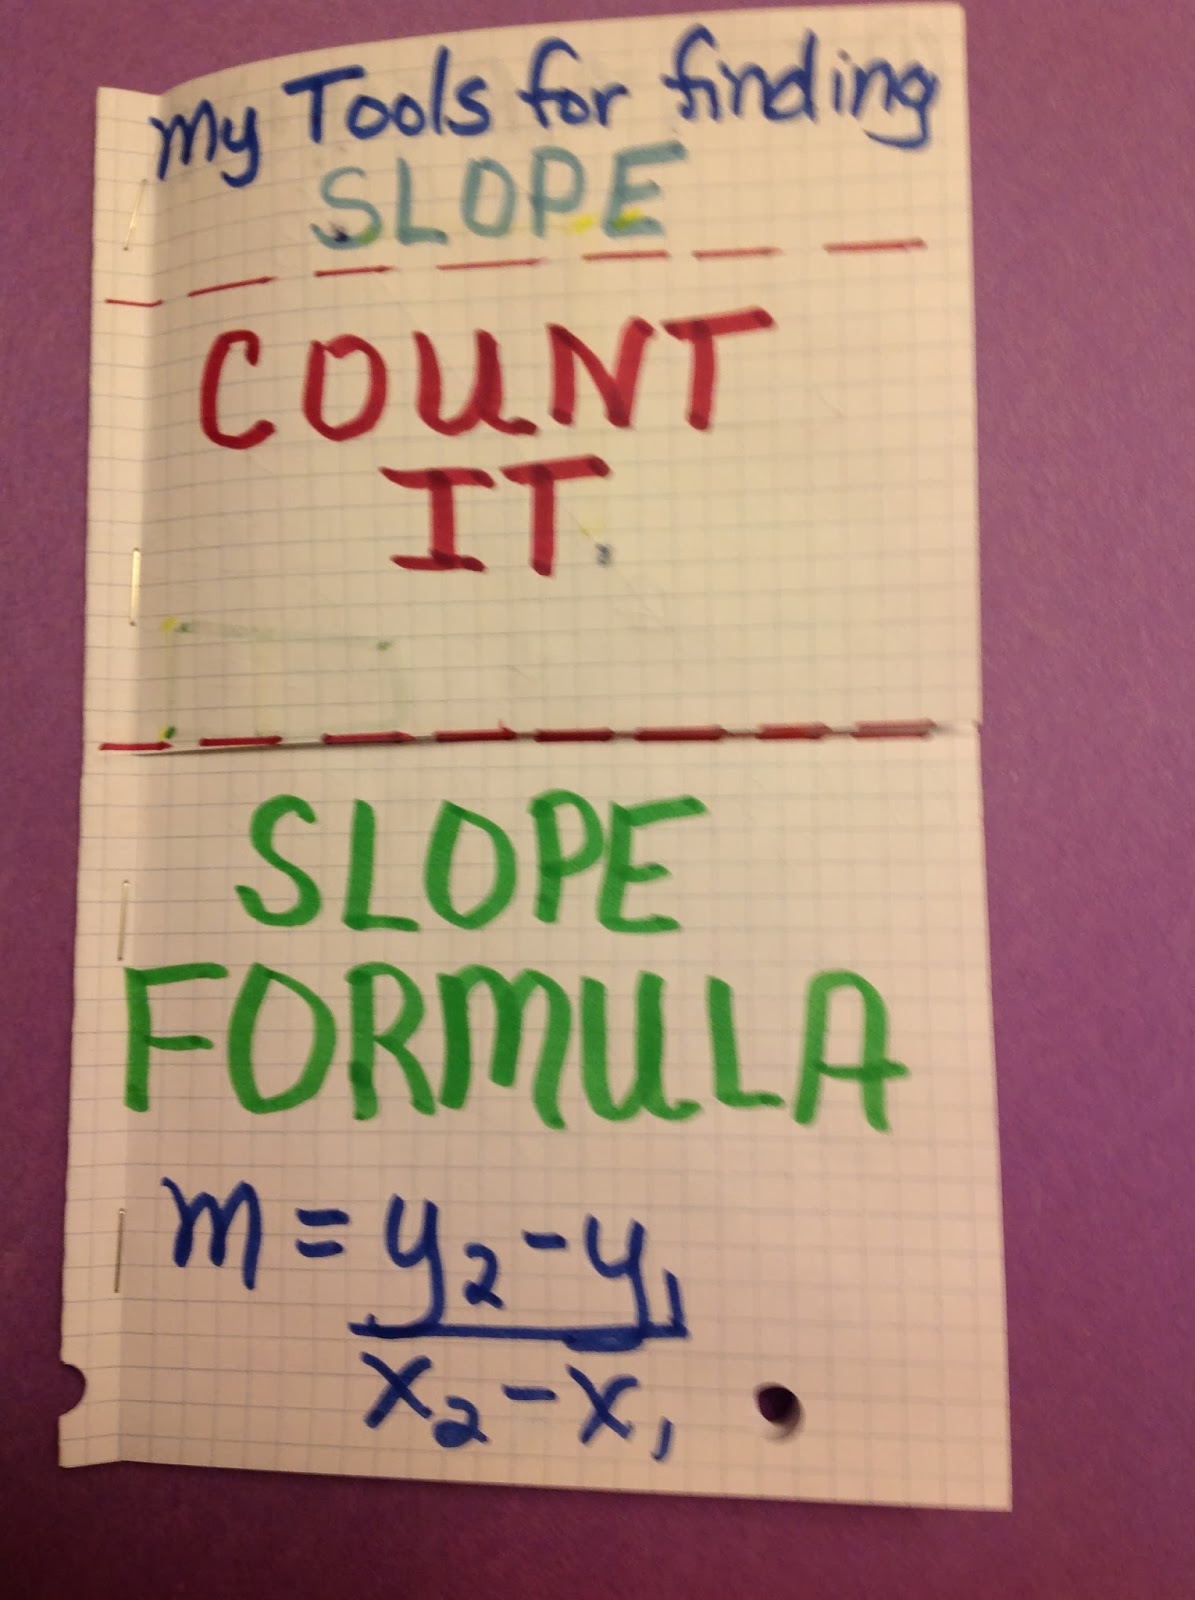 My Tools for finding
SLOPE
COUNT
IT.
SLOPE
FORMULA
m = y₂ - y₁
x₂ - x₁